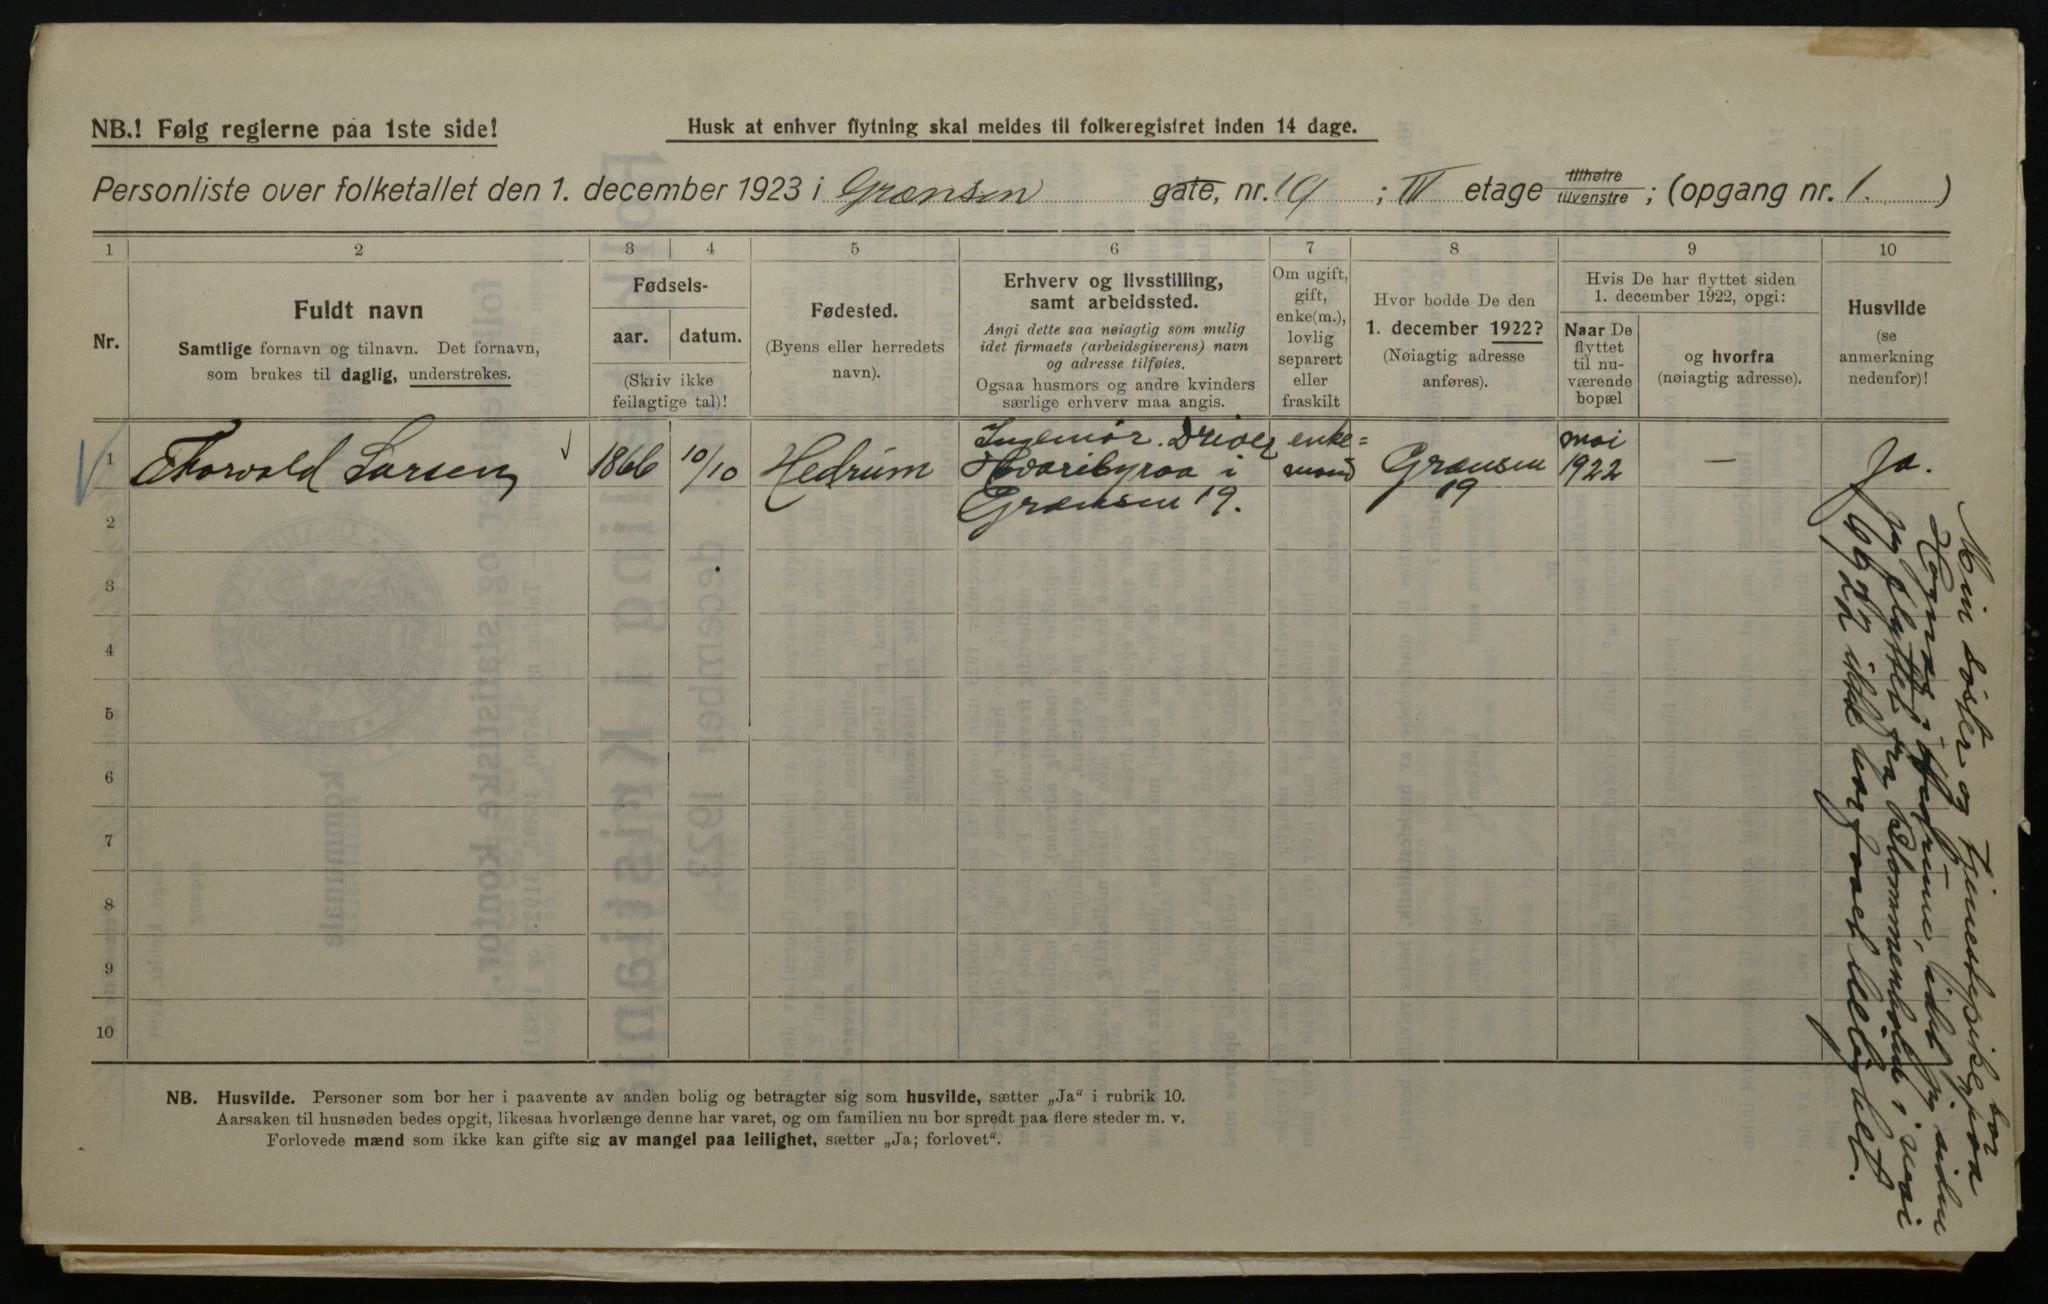 NB.! Følg reglerne paa 1ste side!
Husk at enhver flytning skal meldes til folkeregistret inden 14 dage.
Personliste over folketallet den 1. december 1923 i Grænsen gate, nr. 19 ; IV etage tilhøire tilvenstre ; (opgang nr. 1. )
1 2 3 4 5 6 7 8 9 10
Nr.
Fuldt navn
Samtlige fornavn og tilnavn. Det fornavn,
som brukes til daglig, understrekes.
Fødsels-
aar. datum.
(Skriv ikke
feilagtige tal)!
Fødested.
(Byens eller herredets
navn).
Erhverv og livsstilling,
samt arbeidssted.
Angi dette saa nøiagtig som mulig
idet firmaets (arbeidsgiverens) navn
og adresse tilføies.
Ogsaa husmors og andre kvinders
særlige erhverv maa angis.
Om ugift,
gift,
enke(m.),
lovlig
separert
eller
fraskilt
Hvor bodde De den
1. december 1922?
(Nøiagtig adresse
anføres).
Hvis De har flyttet siden
1. december 1922, opgi:
Naar De
flyttet
til nu-
værende
bopæl
og hvorfra
(nøiagtig adresse).
Husvilde
(se
anmerkning
nedenfor)!
1 Thorvald Larsen 1866 10/10 Hedrum
Ingeniør. Driver
i
Grænsen 19.
enke=
mand
Grænsen
19
mai
1922
—
Ja.
2
3
4
5
6
7
8
9
10
Min søster og tjenestepike bor
paa
i Hedrum, idet jeg siden
jeg flyttet fra Blommenholm i mai
1922 ikke har faaet leilighet.
NB. Husvilde. Personer som bor her i paavente av anden bolig og betragter sig som husvilde, sætter „Ja“ i rubrik 10.
Aarsaken til husnøden bedes opgit, likesaa hvorlænge denne har varet, og om familien nu bor spredt paa flere steder m. v.
Forlovede mænd som ikke kan gifte sig av mangel paa leilighet, sætter „Ja; forlovet“.